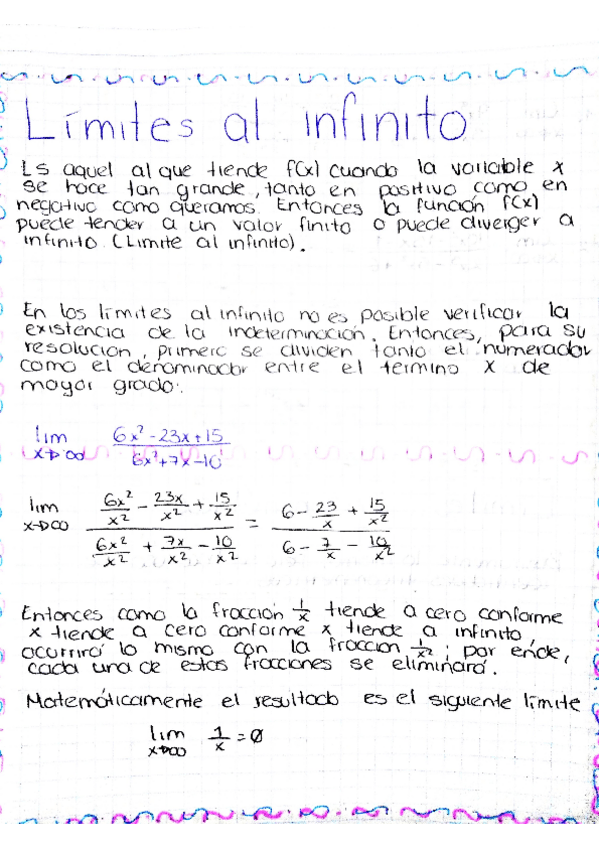 Límites al infinito
Es aquel al que tiende f(x) cuando la variable x
se hace tan grande, tanto en positivo como en
negativo como queramos. Entonces la función f(x)
puede tender a un valor finito o puede diverger a
infinito (Limite al infinito).
En los límites al infinito no es posible verificar la
existencia de la indeterminación. Entonces, para su
resolución, primero se dividen tanto el numerador
como el denominador entre el termino x de
mayor grado:
lim x→∞ (6x² - 23x + 15) / (6x² + 7x - 10)
lim x→∞ (6x²/x² - 23x/x² + 15/x²) / (6x²/x² + 7x/x² - 10/x²) = (6 - 23/x + 15/x²) / (6 - 7/x - 10/x²)
Entonces como la fracción 1/x tiende a cero conforme
x tiende a cero conforme x tiende a infinito,
ocurrirá lo mismo con la fraccion 1/x²; por ende,
cada una de estas fracciones se eliminará.
Matemáticamente el resultado es el siguiente límite
lim x→∞ 1/x = 0